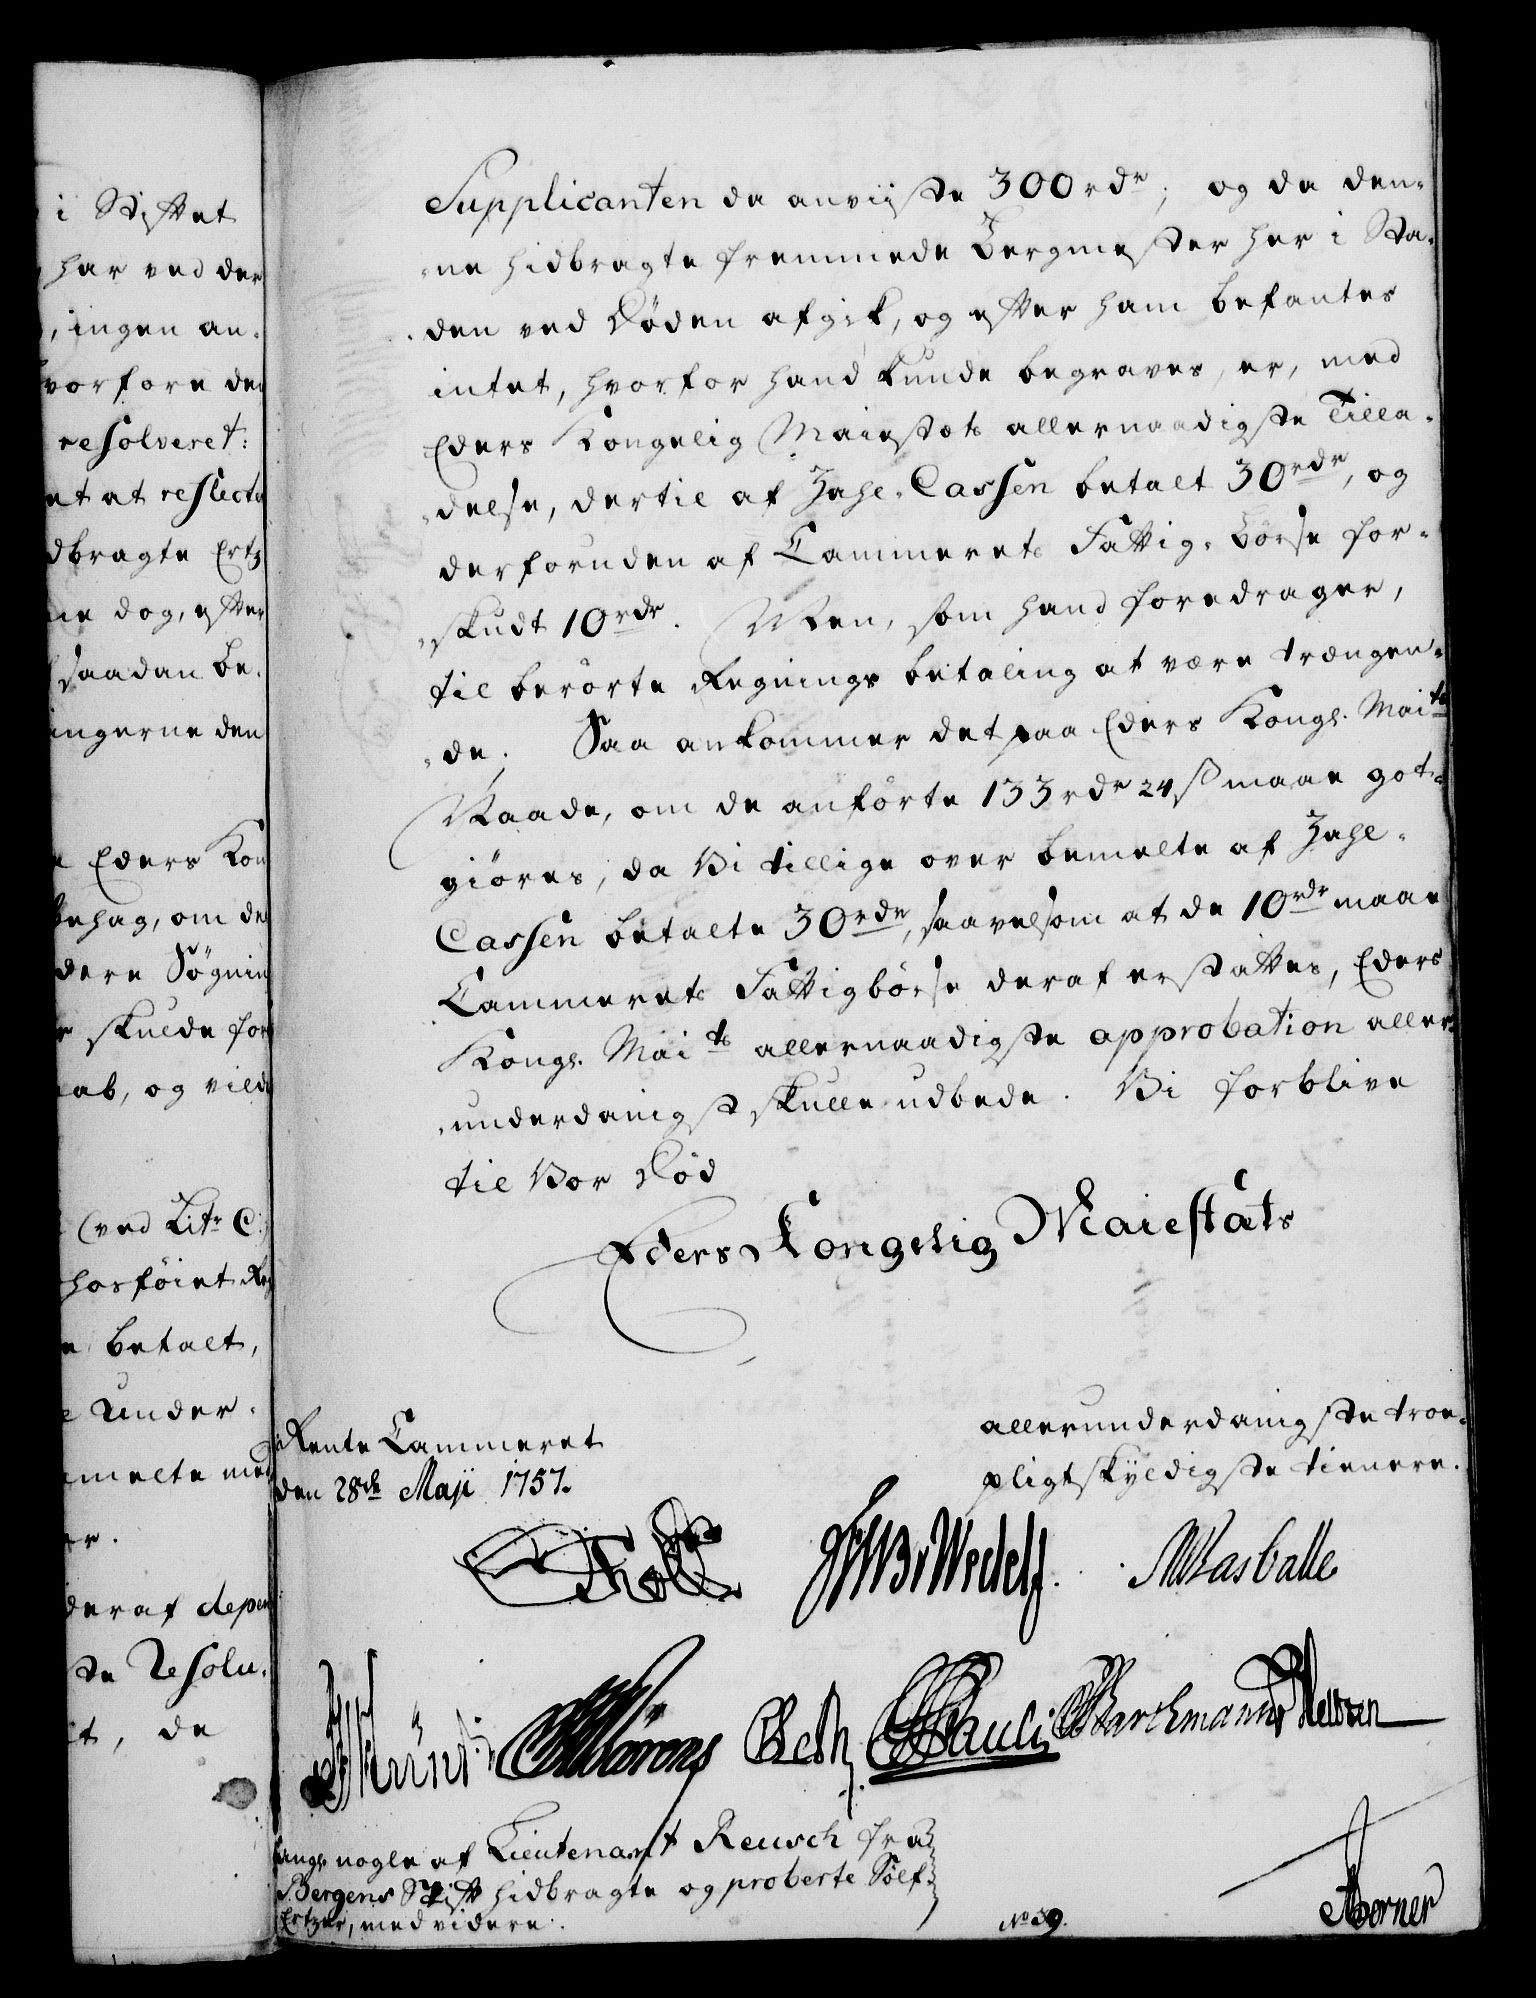 i Stiftet
har ved der
, ingen an-
vorfore den
resolveret:
et at reflecte
dbragte Ertz
ne dog, efter
saadan be-
ingerne den
e Eders Kon
behag, om de
dere Søgnin
r skulde for
ab, og vilde
(ved Litr C:)
hosføiet Reg
e betalt,
e Under-
melte med
er.
deraf depen
ste Resolu-
t, da
Supplicanten da anviiste 300 rdr; og da den-
ne hidbragte fremmede Bergmester her i Sta-
den ved Døden afgik, og efter ham befantes
intet, hvorfor hand kunde begraves, er, med
Eders Kongelig Maiestæts allernaadigste Tilla-
delse, dertil af Zahl-Cassen betalt 30 rdr, og
derforuden af Cammerets Fattig-Børse for-
skudt 10 rdr. Men, som hand foredrager,
til berørte Regnings betaling at være trængen-
de; Saa ankommer det paa Eders Kongl. Maits
Naade, om de anførte 133 rdr 24 ß maae got-
giøres, da Vi tillige over bemelte af Zahl-
Cassen betalte 30 rdr, saavelsom at de 10 rdr maae
Cammerets Fattigbørse deraf erstattes, Eders
Kongl. Maits allernaadigste approbation aller-
underdanigst skulle udbede. Vi forblive
til Vor Død
Eders Kongelig Maiestæts
Rente Cammeret
den 28de Maji 1757.
allerunderdanigste troe-
pligtskyldigste tienere.
Holst Wedell Rasballe
Münt Möröng Beth Pauli Barchmann Neltzen
ang. nogle af Lieutenant Reusch fra
Bergens Stift hidbragte og proberte Sølf-
Ertzer, med videre.
No 39.
Berner